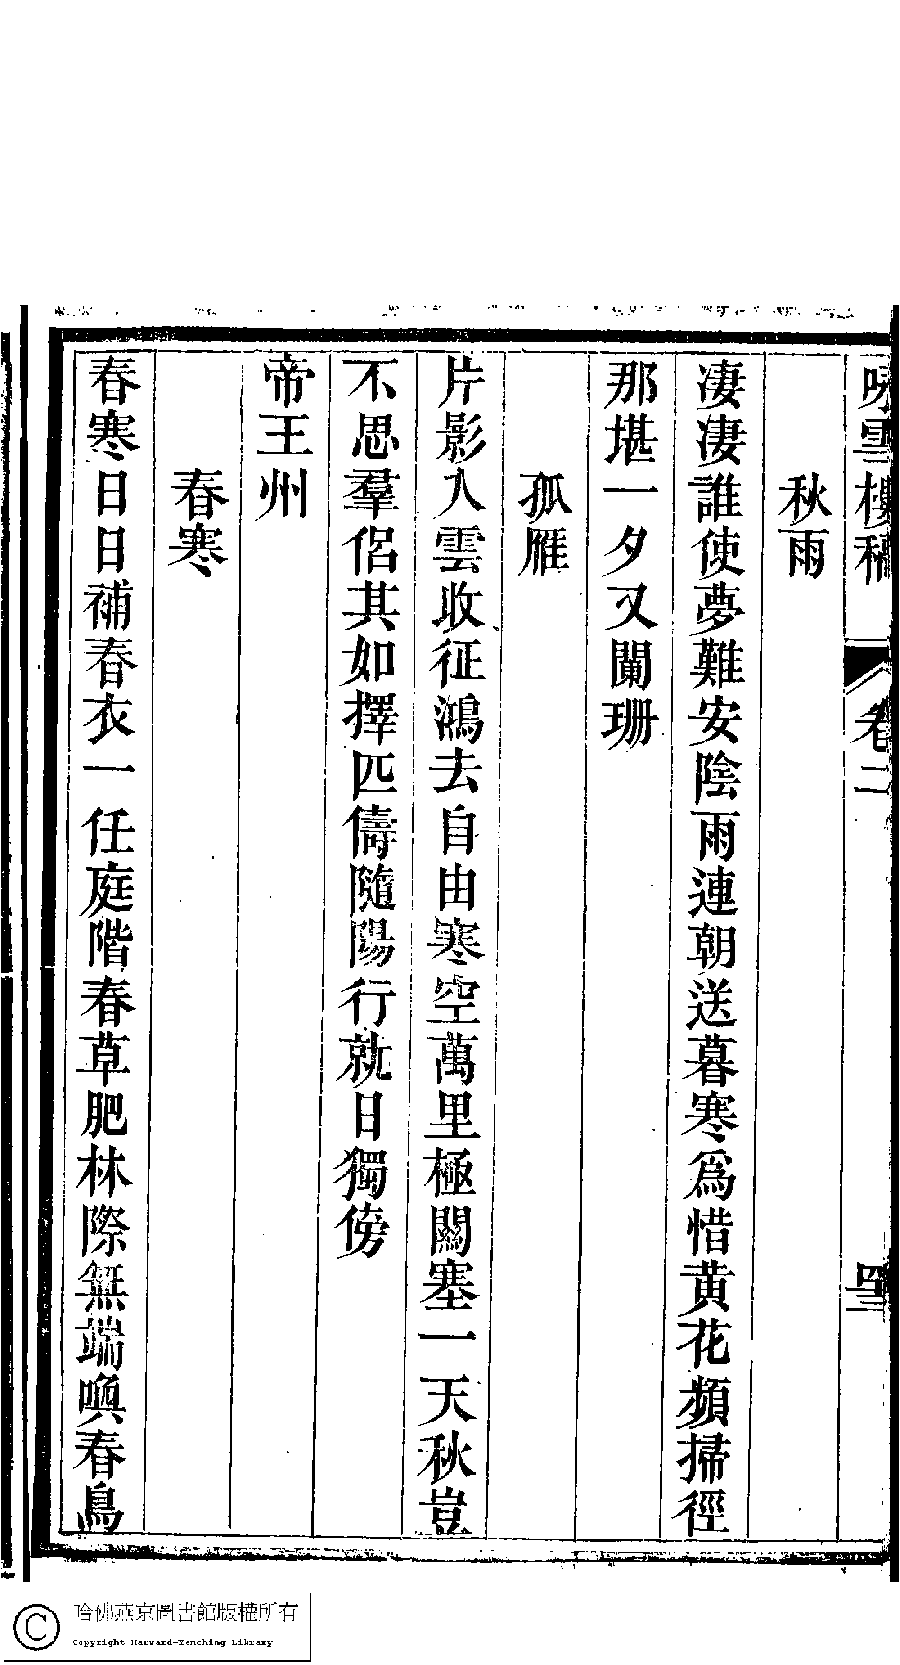 咏雪樓稿
卷二
四
秋雨
凄凄誰使夢難安陰雨連朝送暮寒爲惜黄花頻掃徑
那堪一夕又闌珊
孤雁
片影入雲收征鴻去自由寒空萬里極關塞一天秋豈
不思羣侶其如擇匹儔隨陽行就日獨傍
帝王州
春寒
春寒日日補春衣一任庭階春草肥林際無端喚春鳥
哈佛燕京圖書館版權所有
Copyright Harvard-Yenching Library